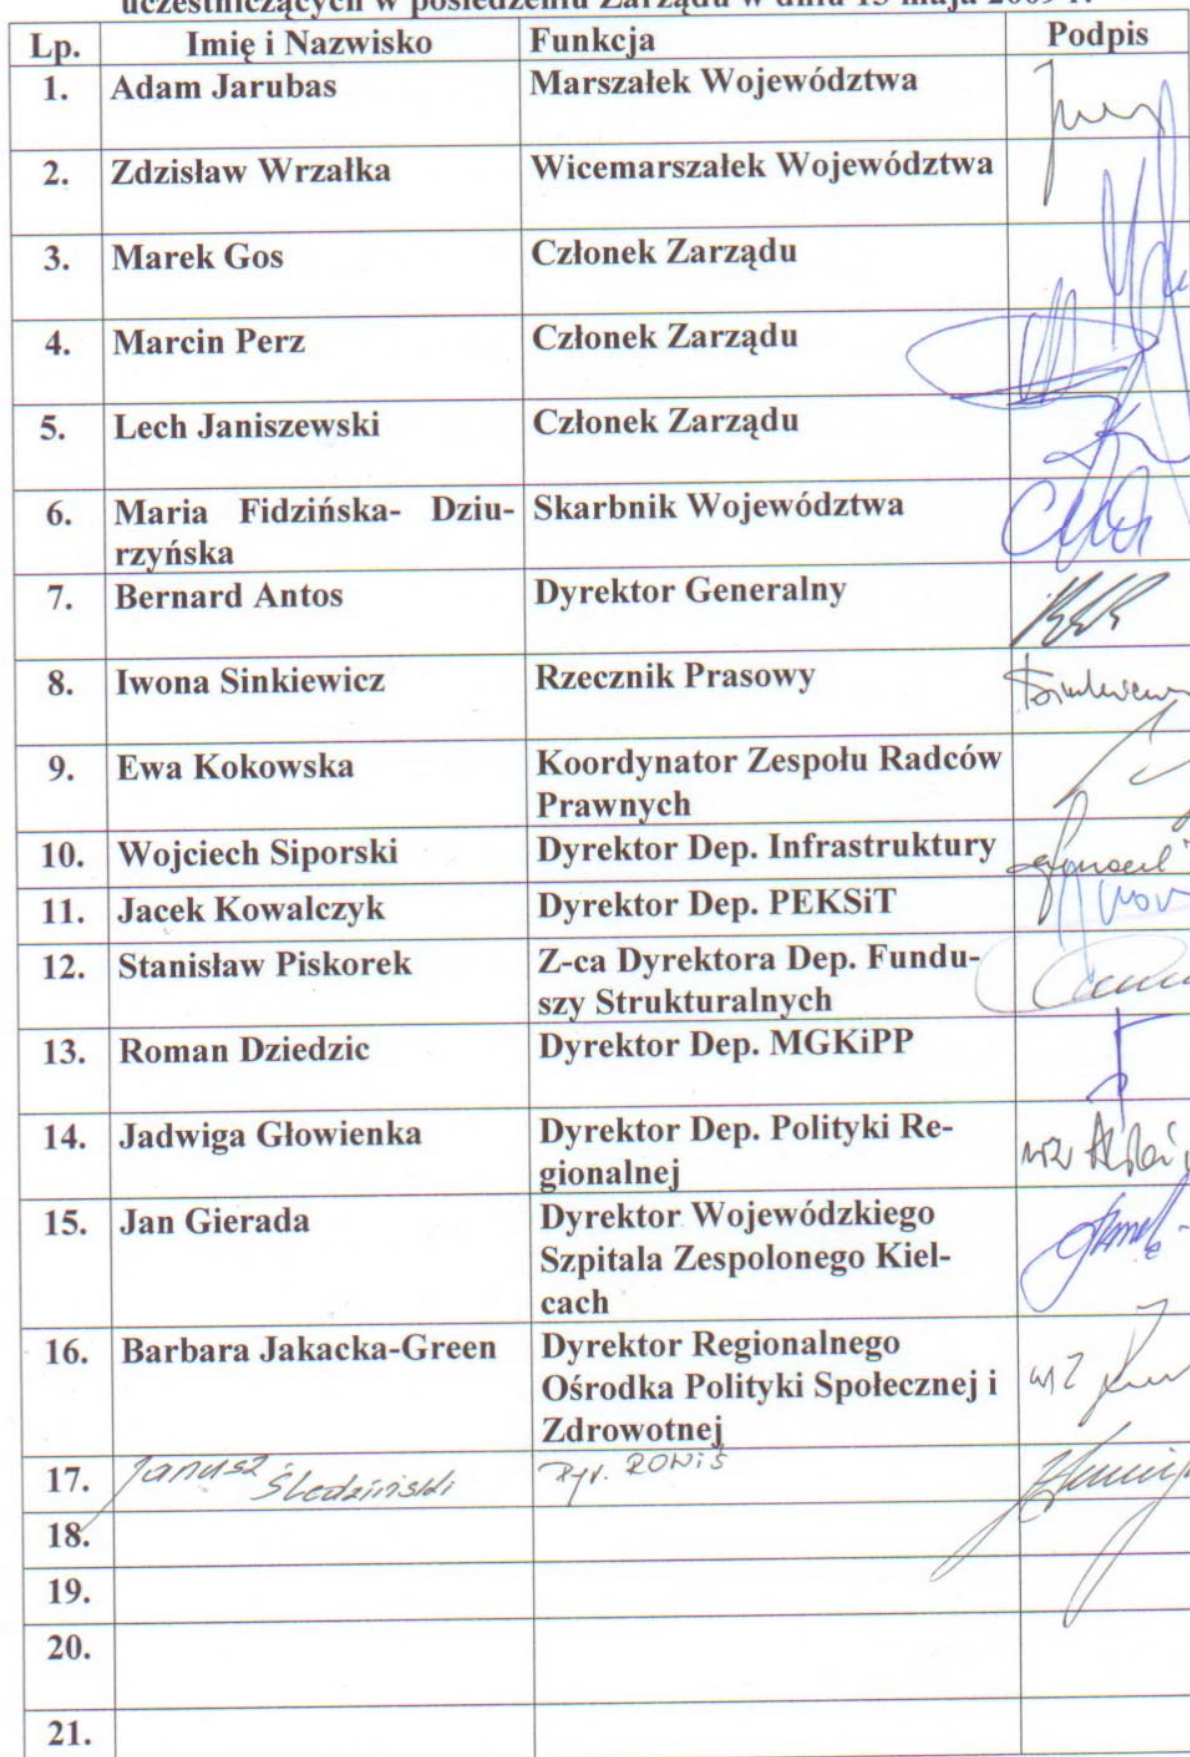 uczestniczących w posiedzeniu Zarządu w dniu 13 maja 2009 r.
Lp. Imię i Nazwisko Funkcja Podpis
1. Adam Jarubas Marszałek Województwa
2. Zdzisław Wrzałka Wicemarszałek Województwa
3. Marek Gos Członek Zarządu
4. Marcin Perz Członek Zarządu
5. Lech Janiszewski Członek Zarządu
6. Maria Fidzińska- Dziu- Skarbnik Województwa
rzyńska
7. Bernard Antos Dyrektor Generalny
8. Iwona Sinkiewicz Rzecznik Prasowy
9. Ewa Kokowska Koordynator Zespołu Radców
Prawnych
10. Wojciech Siporski Dyrektor Dep. Infrastruktury
11. Jacek Kowalczyk Dyrektor Dep. PEKSiT
12. Stanisław Piskorek Z-ca Dyrektora Dep. Fundu-
szy Strukturalnych
13. Roman Dziedzic Dyrektor Dep. MGKiPP
14. Jadwiga Głowienka Dyrektor Dep. Polityki Re-
gionalnej
15. Jan Gierada Dyrektor Wojewódzkiego
Szpitala Zespolonego Kiel-
cach
16. Barbara Jakacka-Green Dyrektor Regionalnego
Ośrodka Polityki Społecznej i
Zdrowotnej
17. Janusz Śledziński Dyr.
18.
19.
20.
21.